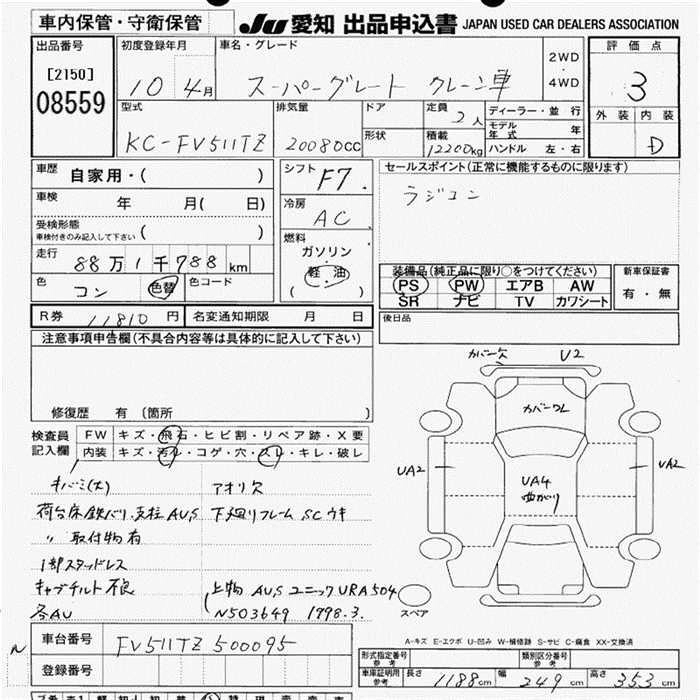 車内保管・守衛保管
JU 愛知 出品申込書 JAPAN USED CAR DEALERS ASSOCIATION
出品番号
[2150]
08559
初度登録年月
10年4月
車名・グレード
スーパーグレート クレーン車
2WD
・
4WD
評価点
3
外装 内装
D
型式
KC-FV511TZ
排気量
20080cc
ドア
形状
定員
2人
積載
12200kg
ディーラー・並行
モデル年式 年
ハンドル 左・右
車歴
自家用・( )
車検
年 月( 日)
受検形態
車検付きのみ記入して下さい ( )
走行
88万1千788km
色
コン
色替
色コード
シフト
F7
冷房
AC
燃料
ガソリン
軽油
( )
セールスポイント(正常に機能するものに限ります)
ラジコン
装備品(純正品に限り○をつけてください)
PS PW エアB AW
SR ナビ TV カワシート
新車保証書
有・無
後日品
R券 11810円
名変通知期限 月 日
注意事項申告欄(不具合内容等は具体的に記入して下さい)
修復歴 有 (箇所 )
検査員
記入欄
FW キズ・飛石・ヒビ割・リペア跡・X要
内装 キズ・汚レ・コゲ・穴・スレ・キレ・破レ
キバミ(大)
アオリ欠
荷台床鉄バリ.支柱AU,S
下廻りフレームSCウキ
〃 取付物有
1部スタッドレス
キャブチルト不良
各AU
上物 AU,S ユニックURA504
N503649 1998.3.
カバー欠 U2
カバーワレ
UA2
UA4
曲がり
UA2
スペア
A-キズ E-エクボ U-凹み W-補修跡 S-サビ C-腐食 XX-交換済
車台番号
FV511TZ 500095
登録番号
N
形式指定番号
参考
類別区分番号
参考
車庫証明用
参考
長さ 1188cm
幅 249cm
高さ 353cm